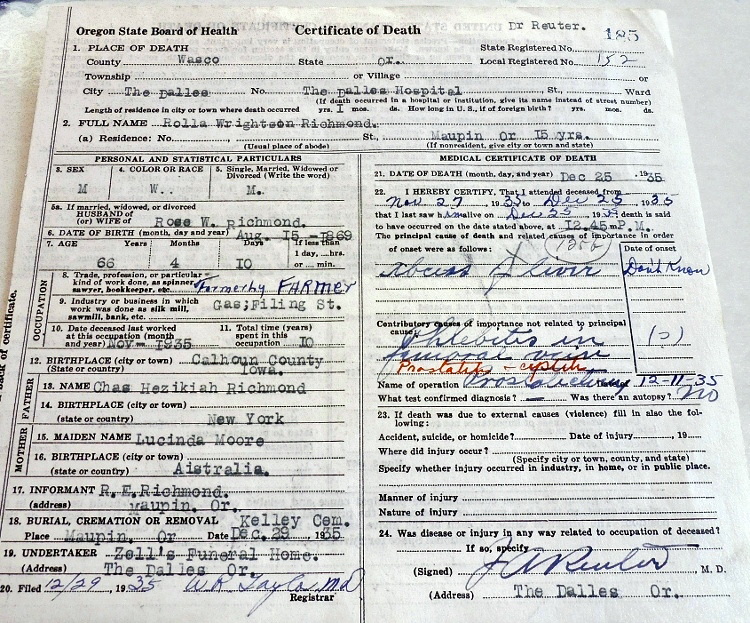 Dr Reuter.
185
Oregon State Board of Health Certificate of Death
1. PLACE OF DEATH
State Registered No.
County Wasco State Or. Local Registered No. 152
Township or Village or
City The Dalles No. The Dalles Hospital St., Ward
(If death occurred in a hospital or institution, give its name instead of street number)
Length of residence in city or town where death occurred yrs. 1 mos. ds. How long in U. S., if of foreign birth? yrs. mos. ds.
2. FULL NAME Rolla Wrightson Richmond.
(a) Residence: No. St., Maupin Or 15 yrs.
(Usual place of abode) (If nonresident, give city or town and state)
PERSONAL AND STATISTICAL PARTICULARS
3. SEX 4. COLOR OR RACE 5. Single, Married, Widowed or Divorced (Write the word)
M W. M.
5a. If married, widowed, or divorced
HUSBAND of
(or) WIFE of Rose W. Richmond.
6. DATE OF BIRTH (month, day, and year) Aug. 15 -1869
7. AGE Years Months Days If less than 1 day, ....hrs. or .... min.
66 4 10
OCCUPATION
8. Trade, profession, or particular kind of work done, as spinner, sawyer, bookkeeper, etc. Formerly FARMER
9. Industry or business in which work was done, as silk mill, sawmill, bank, etc. Gas;Filing St.
10. Date deceased last worked at this occupation (month and year) Nov- 1935
11. Total time (years) spent in this occupation 10
12. BIRTHPLACE (city or town) Calhoun County
(State or country) Iowa.
FATHER
13. NAME Chas Hezikiah Richmond
14. BIRTHPLACE (city or town)
(state or country) New York
MOTHER
15. MAIDEN NAME Lucinda Moore
16. BIRTHPLACE (city or town)
(state or country) Aistralia.
17. INFORMANT R.E.Richmond.
(address) Maupin. Or.
18. BURIAL, CREMATION OR REMOVAL Kelley Cem.
Place Maupin. Or Date Dec. 29 1935
19. UNDERTAKER Zell's Funeral Home.
(Address) The Dalles Or.
20. Filed 12/29, 1935
Registrar
MEDICAL CERTIFICATE OF DEATH
21. DATE OF DEATH (month, day, and year) Dec 25 .1935
22. I HEREBY CERTIFY, That I attended deceased from
Nov 27 1935 to Dec 25 1935
that I last saw him alive on Dec 25 19 35 death is said
to have occurred on the date stated above, at 12.45.mP.M.
The principal cause of death and related causes of importance in order
of onset were as follows:
Date of onset
Abcess of liver Don't Know
Contributory causes of importance not related to principal
cause:
Phlebitis in
femoral vein
Prostatitis - cystitis
Name of operation Prostatectomy 12-11-35
What test confirmed diagnosis? Was there an autopsy? No
23. If death was due to external causes (violence) fill in also the following:
Accident, suicide, or homicide? Date of injury , 19
Where did injury occur?
(Specify city or town, county, and state)
Specify whether injury occurred in industry, in home, or in public place.
Manner of injury
Nature of injury
24. Was disease or injury in any way related to occupation of deceased?
If so, specify
(Signed) J A Reuter M. D.
(Address) The Dalles Or.
back of certificate.